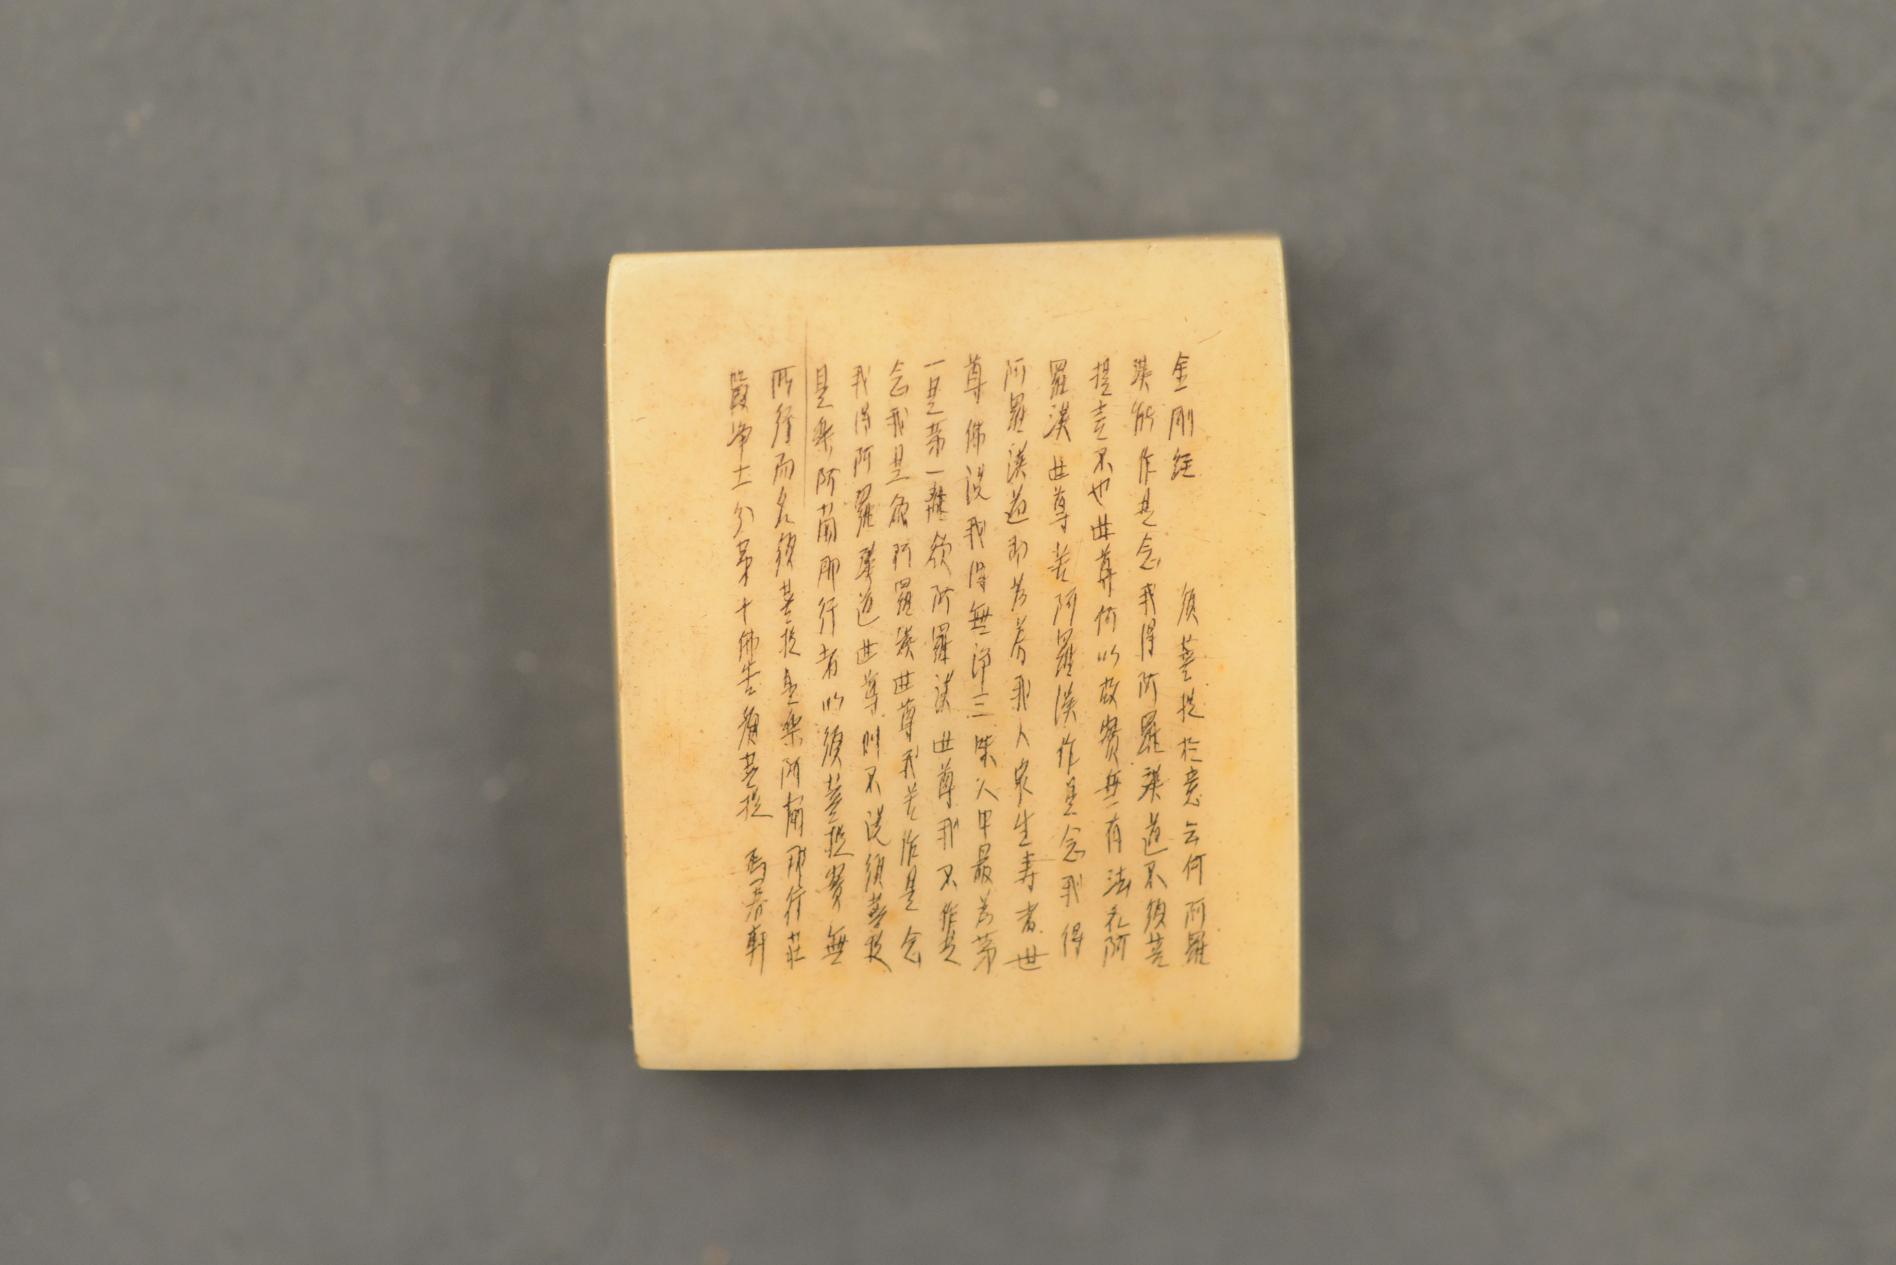 金剛經 須菩提於意云何阿羅
漢能作是念我得阿羅漢道不須菩
提言不也世尊何以故實無有法名阿
羅漢世尊若阿羅漢作是念我得
阿羅漢道即為着我人眾生壽者世
尊佛說我得無諍三昧人中最為第
一是第一離欲阿羅漢世尊我不作是
念我是離欲阿羅漢世尊我若作是念
我得阿羅漢道世尊則不說須菩提
是樂阿蘭那行者以須菩提實無
所行而名須菩提是樂阿蘭那行莊
嚴淨土分第十佛告須菩提 軒